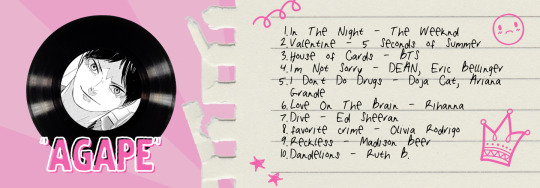 "AGAPE"
1. In The Night - The Weeknd
2. Valentine - 5 Seconds of Summer
3. House of Cards - BTS
4. I'm Not Sorry - DEAN, Eric Bellinger
5. I Don't Do Drugs - Doja Cat, Ariana
Grande
6. Love On The Brain - Rihanna
7. Dive - Ed Sheeran
8. favorite crime - Olivia Rodrigo
9. Reckless - Madison Beer
10. Dandelions - Ruth B.